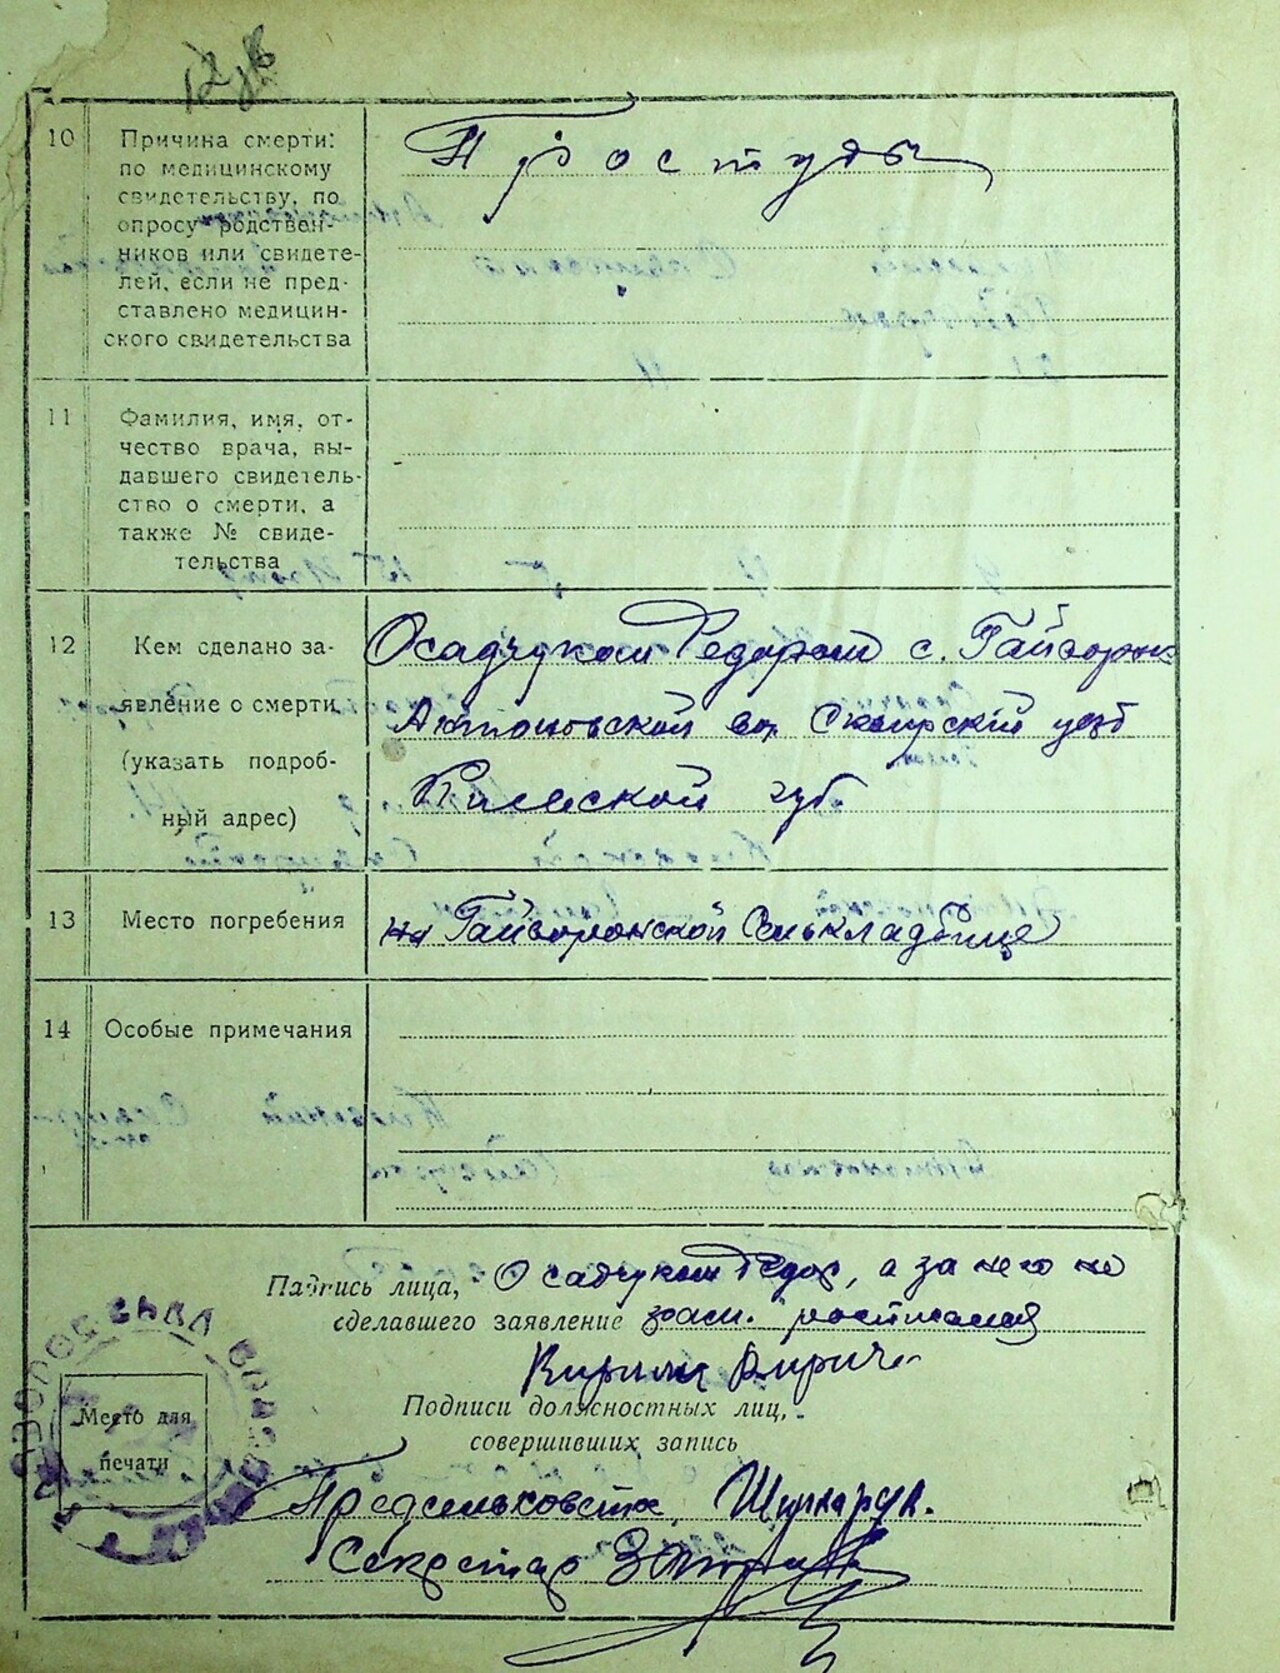 10
Причина смерти:
по медицинскому
свидетельству, по
опросу родствен-
ников или свидете-
лей, если не пред-
ставлено медицин-
ского свидетельства
Простуды
11
Фамилия, имя, от-
чество врача, вы-
давшего свидетель-
ство о смерти, а
также № свиде-
тельства
12
Кем сделано за-
явление о смерти
(указать подроб-
ный адрес)
Осадчуком Федором с. Гайворон
Антоновской вол Сквирский уезд
Киевской губ.
13
Место погребения
на Гайворонской Селькладбище
14
Особые примечания
Подпись лица,
Осадчуком Федор, а за него не
сделавшего заявление
росписался
Кирило Кирич
Подписи должностных лиц,
совершивших запись
Место для
печати
Предсельховета
Секретар